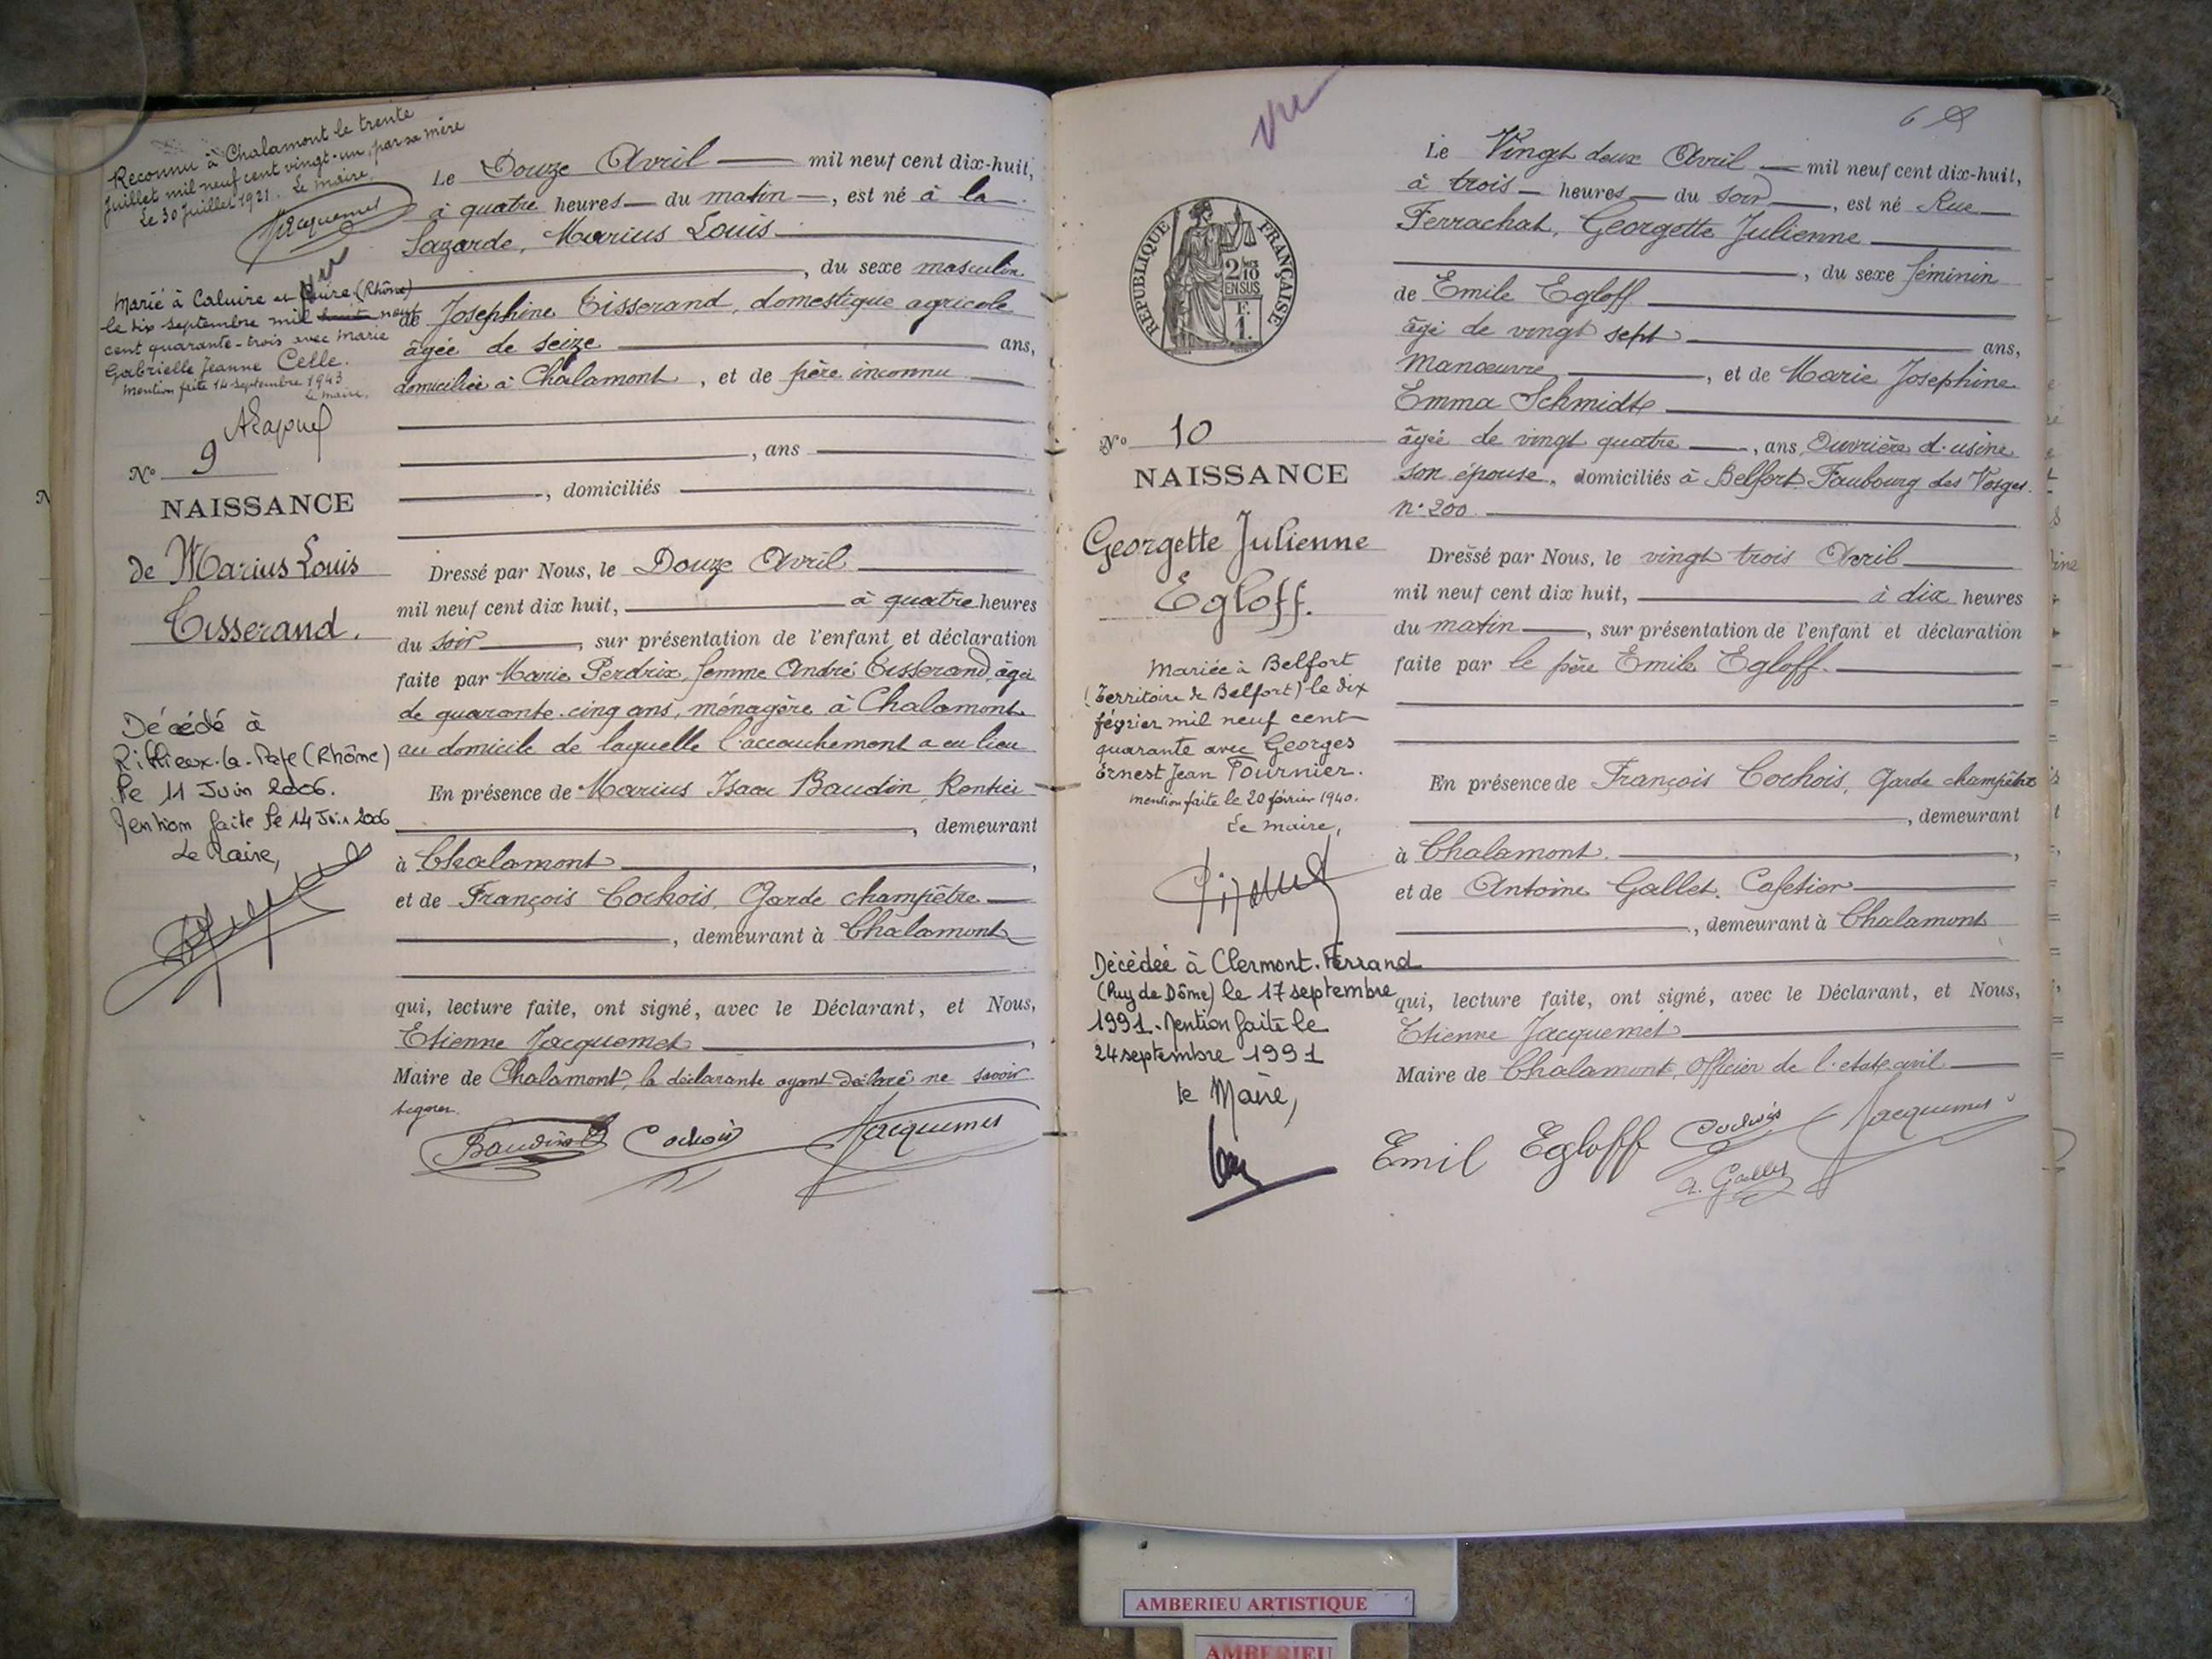 Reconnu à Chalamont le trente
juillet mil neuf cent vingt-un, par sa mère
Le 30 juillet 1921. Le maire,
Jacquemet
vu
Marié à Caluire et Cuire (Rhône)
le dix septembre mil huit neuf
cent quarante-trois avec Marie
Gabrielle Jeanne Celle.
Mention faite 14 septembre 1943
Le maire,
No 9
NAISSANCE
de Marius Louis
Tisserand.
Décédé à
Rillieux-la-Pape (Rhône)
le 11 Juin 2006.
Mention faite le 14 Juin 2006
Le Maire,
Le Douze Avril mil neuf cent dix-huit,
à quatre heures du matin, est né à la
Lazarde, Marius Louis
, du sexe masculin
de Josephine Tisserand, domestique agricole
âgée de seize ans,
domiciliée à Chalamont, et de père inconnu
, ans
, domiciliés
Dressé par Nous, le Douze Avril
mil neuf cent dix huit, à quatre heures
du soir, sur présentation de l'enfant et déclaration
faite par Marie Perdrix, femme André Tisserand, âgée
de quarante-cinq ans, ménagère à Chalamont
au domicile de laquelle l'accouchement a eu lieu
En présence de Marius Isaac Baudin, Rentier
, demeurant
à Chalamont,
et de François Cochois, Garde champêtre
, demeurant à Chalamont
qui, lecture faite, ont signé, avec le Déclarant, et Nous,
Etienne Jacquemet,
Maire de Chalamont, la déclarante ayant déclaré ne savoir
signer.
Baudin Cochois Jacquemet
vu
6
RÉPUBLIQUE FRANÇAISE
2/10
EN SUS
F.
1.
No 10
NAISSANCE
Georgette Julienne
Egloff.
Mariée à Belfort
(Territoire de Belfort) le dix
février mil neuf cent
quarante avec Georges
Ernest Jean Fournier.
Mention faite le 20 février 1940.
Le maire,
Décédée à Clermont-Ferrand
(Puy de Dôme) le 17 septembre
1991. Mention faite le
24 septembre 1991
le Maire,
Le Vingt deux Avril mil neuf cent dix-huit,
à trois heures du soir, est né Rue
Ferrachat, Georgette Julienne
, du sexe féminin
de Emile Egloff
âgé de vingt sept ans,
manœuvre, et de Marie Josephine
Emma Schmidt
âgée de vingt quatre, ans, Ouvrière d'usine
son épouse, domiciliés à Belfort Faubourg des Vosges
n° 200
Dressé par Nous, le vingt trois Avril
mil neuf cent dix huit, à dix heures
du matin, sur présentation de l'enfant et déclaration
faite par le père Emile Egloff.
En présence de François Cochois, Garde champêtre
, demeurant
à Chalamont,
et de Antoine Gallet, Cafetier
, demeurant à Chalamont
qui, lecture faite, ont signé, avec le Déclarant, et Nous,
Etienne Jacquemet
Maire de Chalamont, Officier de l'état civil
Emil Egloff Cochois Jacquemet
A. Gallet
AMBERIEU ARTISTIQUE
AMBERIEU